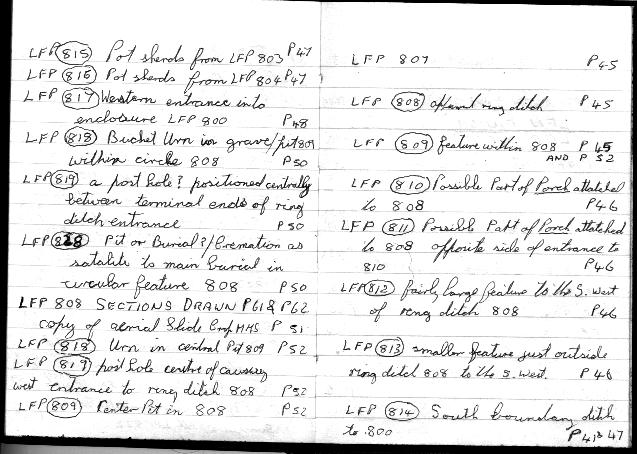 LFP 815 Pot sherds from LFP 803 P47
LFP 816 Pot sherds from LFP 804 P47
LFP 817 Western entrance into
enclosure LFP 800 P48
LFP 818 Bucket Urn in grave/pit 809
within circle 808 P50
LFP 819 a post hole? positioned centrally
between terminal ends of ring
ditch entrance P50
LFP 828 Pit or Burial?/Cremation as
satalite to main burial in
circular feature 808 P50
LFP 808 SECTIONS DRAWN P61 & P62
copy of aerial Slide MHS P 51
LFP 818 Urn in central Pit 809 P52
LFP 819 post hole centre of causway
west entrance to ring ditch 808 P52
LFP 809 Center Pit in 808 P52
LFP 807 P45
LFP 808 ring ditch P45
LFP 809 feature within 808 P 45
AND P 52
LFP 810 Possible Part of Porch attatched
to 808 P46
LFP 811 Possible Part of Porch attatched
to 808 opposite side of entrance to
810 P46
LFP 812 fairly large feature to the S. West
of ring ditch 808 P46
LFP 813 smaller feature just outside
ring ditch 808 to the S. West. P46
LFP 814 South boundary ditch
to 800 47